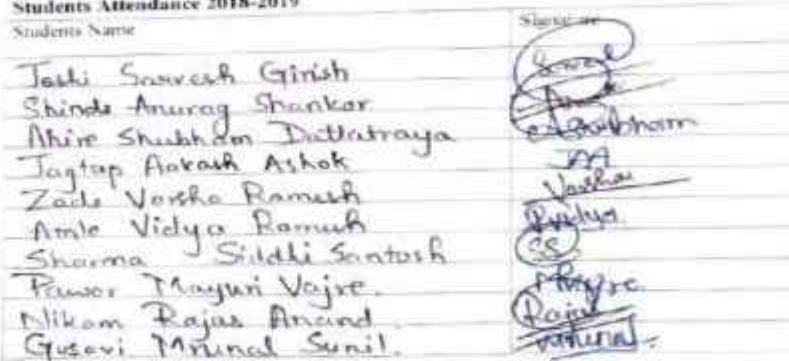 Students Attendance 2018-2019
Students Name Signature
Joshi Sarvesh Girish
Shinde Anurag Shankar
Ahire Shubham Dattatraya Shubham
Jagtap Aakash Ashok JAA
Zade Varsha Ramesh Varsha
Amle Vidya Ramesh Vidya
Sharma Siddhi Santosh SS
Pawar Mayuri Vajre.
Nikam Rajas Anand. Rajas
Gusavi Mrunal Sunil. Mrunal